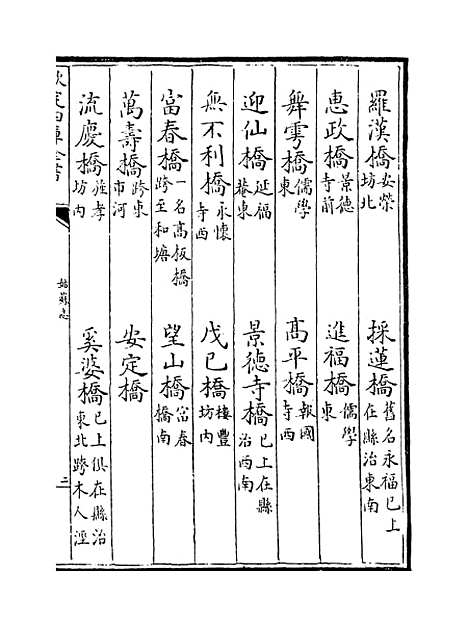 羅漢橋安榮坊北　採蓮橋舊名永福已上在縣治東南
惠政橋景德寺前　進福橋儒學東
舞雩橋儒學東　高平橋報國寺西
迎仙橋延福菴東　景德寺橋已上在縣治西南
無不利橋永懷寺西　戊己橋樓豐坊内
富春橋一名高板橋跨至和塘　望山橋富春橋南
萬壽橋跨東市河　安定橋
流慶橋旌孝坊内　奚婆橋已上俱在縣治東北跨木人涇
欽定四庫全書
姑蘇志
三